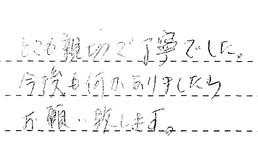 とても親切で丁寧でした。
今後も何かありましたら
お願い致します。